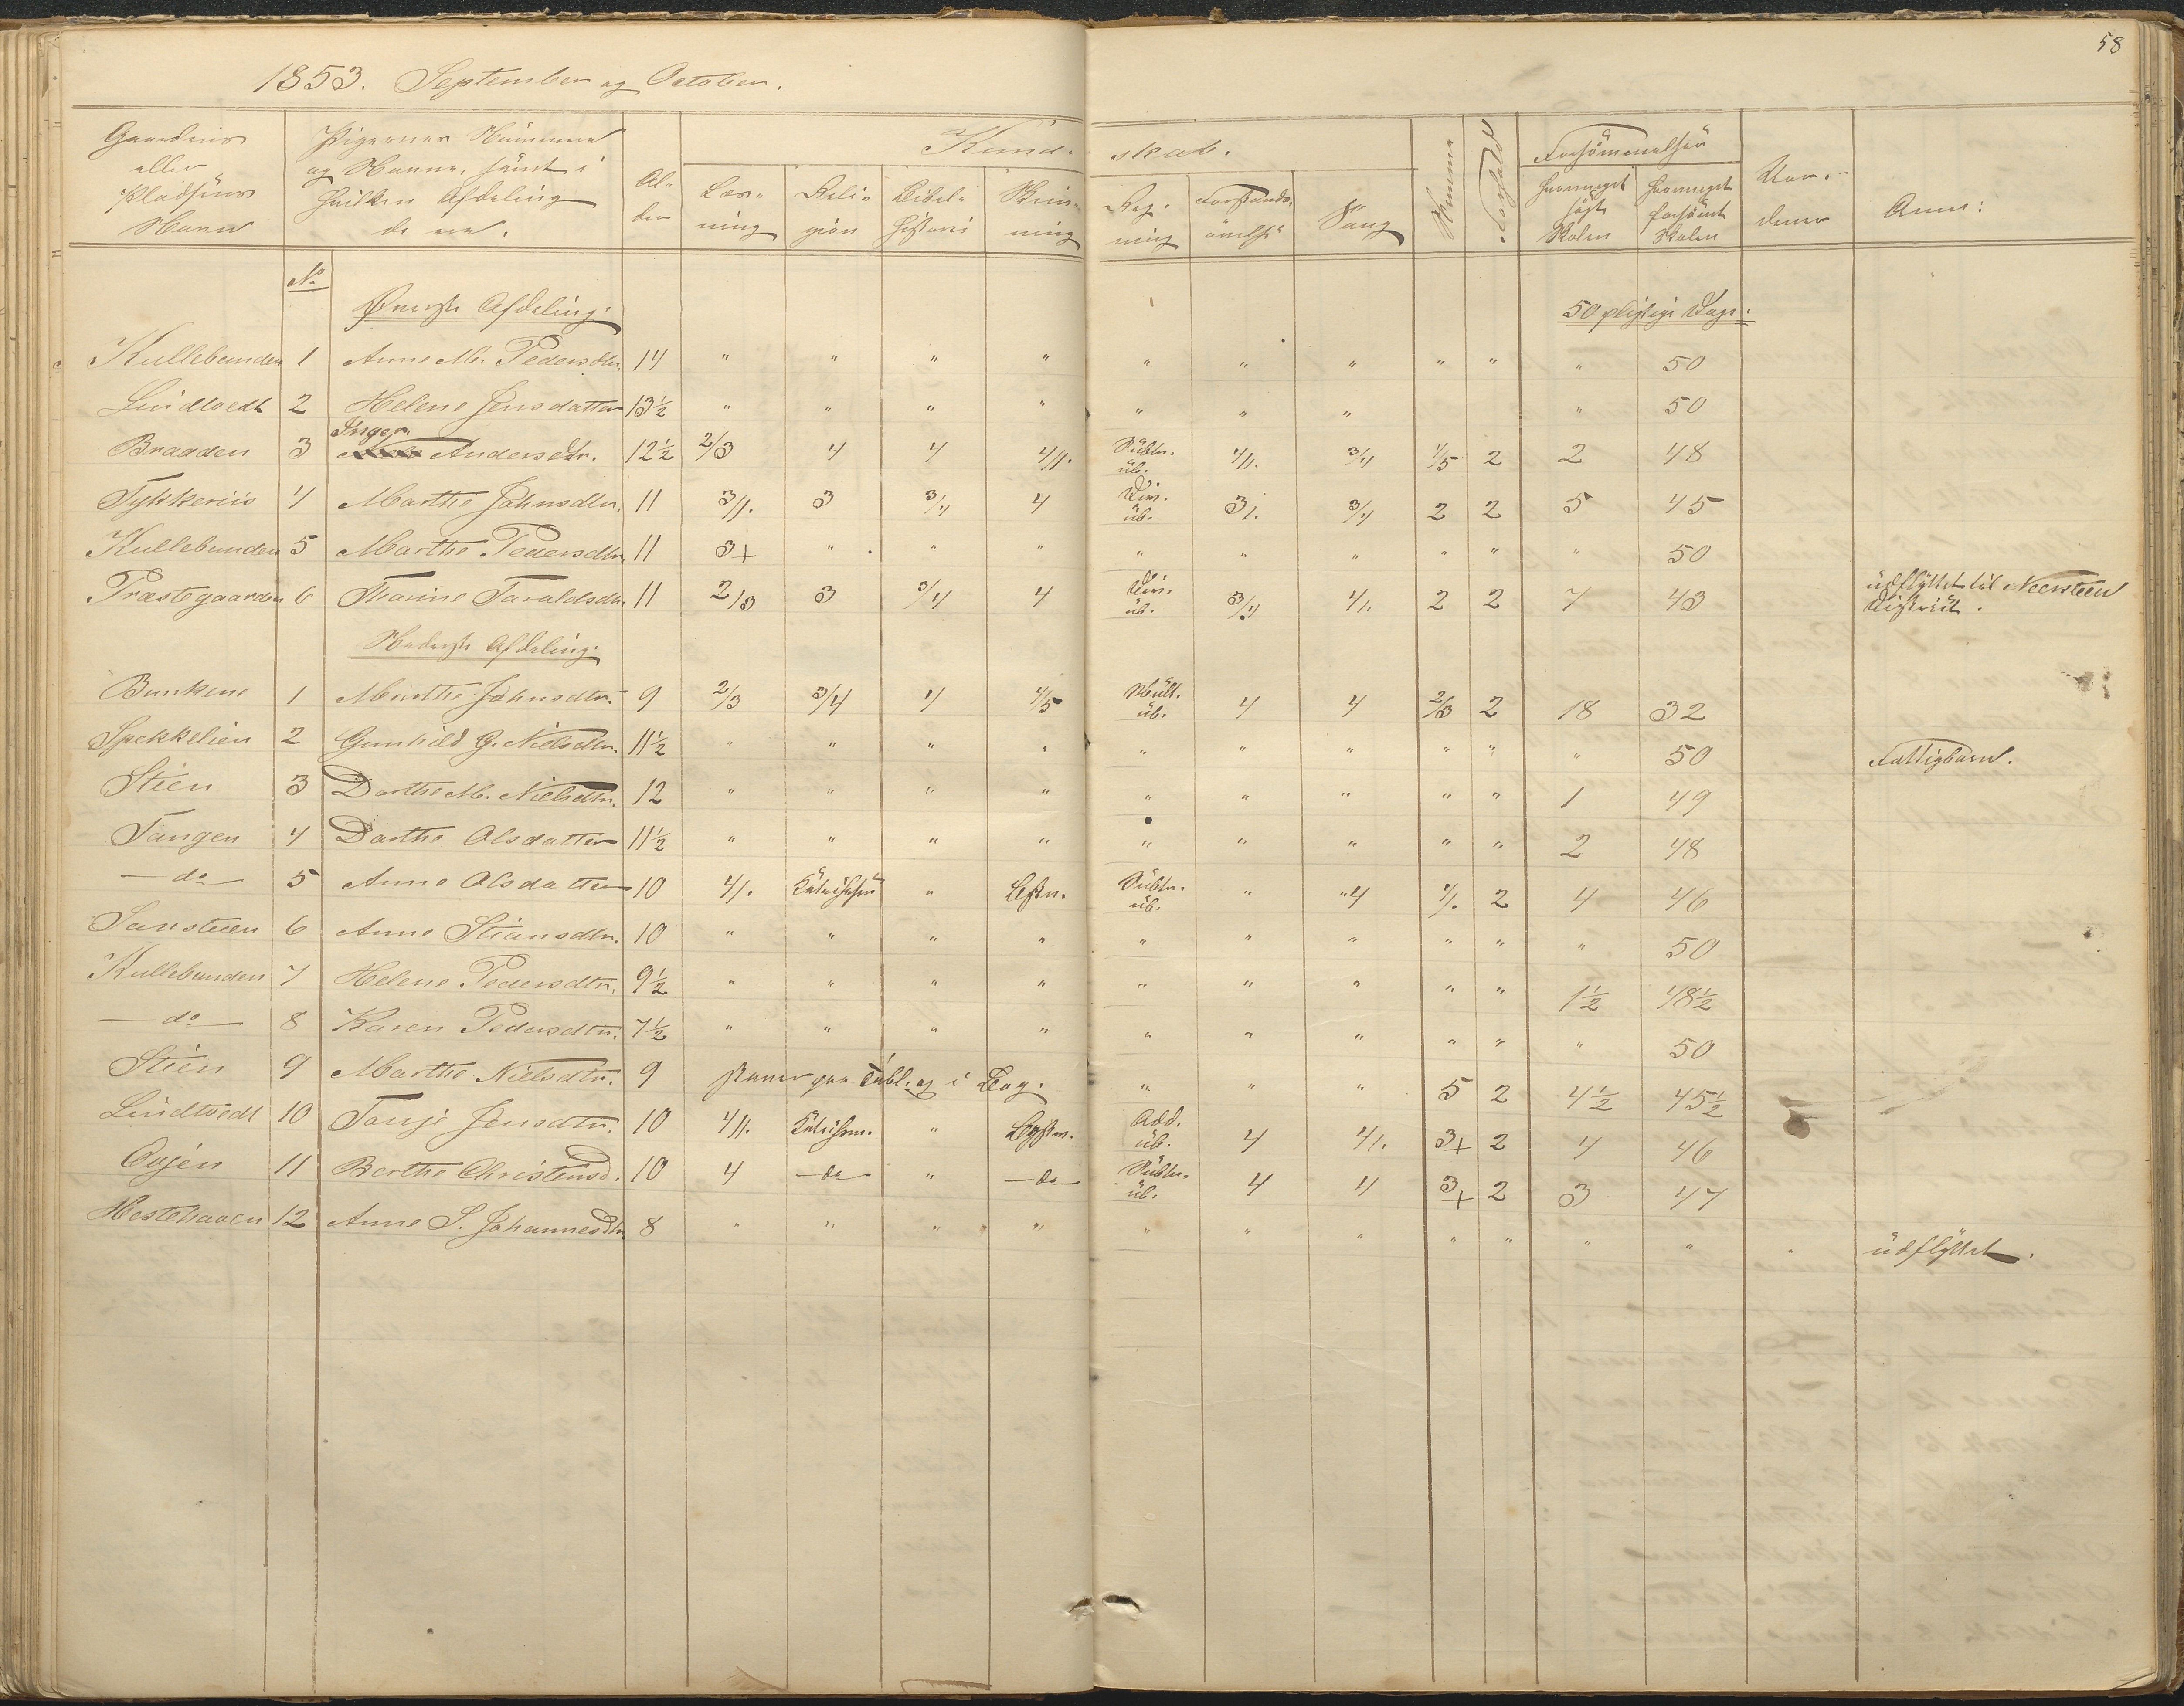 58
1853. September og October.
Gaardens eller Pladsens Navn | Pigernes Nummer og Navne, samt i hvilken Afdeling de ere. | Alder | Kundskab. | Forsömmelser
Læsning | Religion | Bibelhistorie | Skrivning | Regning | Forstandsövelse | Sang | Nemme | Forhold | hvormeget søgt Skolen | hvormeget forsömt Skolen | Anm:
No
Øverste Afdeling. 50 pligtige Dage.
Kullebunden 1 Anne M. Pedersdtr. 14 " " " " " " " " " " 50
Lindtvedt 2 Helene Jensdatter 13½ " " " " " " " " 50
Braaden 3 Inger Andersdtr. 12½ 2/3 4 4 4/. Subtr. üb. 4/. 3/4 4/5 2 2 48
Tykkeriis 4 Marthe Johnsdtr. 11 3/. 3 3/4 4 Div. üb. 3/. 3/4 2 2 5 45
Kullebunden 5 Marthe Pedersdtr. 11 3+ " " " " " " " " " 50
Præstegaarden 6 Tharine Taraldsdtr. 11 2/3 3 3/4 4 Div. üb. 3/4 4/. 2 2 7 43 üdflyttet til Neersteen District.
Nederste Afdeling.
Bunkene 1 Marthe Johnsdtr. 9 2/3 3/4 4 4/5 Mult. üb. 4 4 2/3 2 18 32
Spekkelien 2 Gunhild G. Nielsdtr. 11½ " " " " " " " " " " 50 Fattigbarn.
Stien 3 Dorthe M. Nielsdtr. 12 " " " " " " " " " 1 49
Tangen 4 Dorthe Olsdatter 11½ " " " " " " " " " 2 48
—do— 5 Anne Olsdatter 10 4/. " Subtr. üb. " "4 4/. 2 4 46
Sansteen 6 Anne Stiansdtr. 10 " " " " " " " " " " 50
Kullebunden 7 Helene Pedersdtr. 9½ " " " " " " " " " 1½ 48½
—do— 8 Karen Pedersdtr. 7½ " " " " " " " " " " 50
Stien 9 Marthe Nielsdtr. 9 staver paa Tabl. og i Bog. " " " 5 2 4½ 45½
Lindtvedt 10 Tonje Jensdtr. 10 4/. " Add. üb. 4 4/. 3+ 2 4 46
Oosjen 11 Berthe Christensd. 10 4 —do— " —do— Subtr. üb. 4 4 3+ 2 3 47
Hestehaven 12 Anne S. Johannesdtr. 8 " " " " " " " " " " " " üdflyttet.